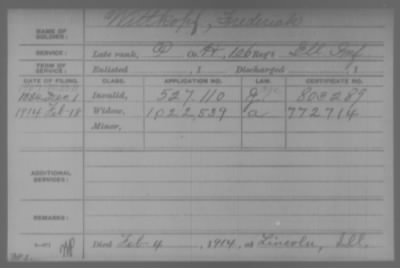 NAME OF SOLDIER: Wittkopf, Frederick
SERVICE: Late rank, P Co. H, 126 Reg't Ill Inf
TERM OF SERVICE: Enlisted , 1 Discharged , 1
DATE OF FILING. CLASS. APPLICATION NO. LAW. CERTIFICATE NO.
1884 1 Invalid, 527.110 803289
1914 Feb-18 Widow, 1022,539 a 772714
Minor,
ADDITIONAL SERVICES:
REMARKS:
Died Feb-4, 1914, at Lincoln, Ill.